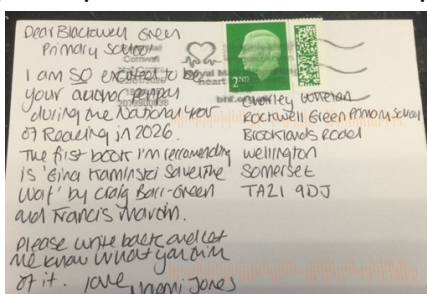 Dear Blackwell Green
Primary School
I am SO excited to be
your author penpal
during the National Year
of Reading in 2026.
The first book I'm recomending
is 'Gina Kaminski Saves the
Wolf' by Craig Barr-Green
and Francis Martin.
Please write back and let
me know what you think
of it. love
Naomi Jones
Cornwall
Royal Mail
heart
bhf.org.uk
2ND
Rockwell Green Primary School
Brooklands Road
Wellington
Somerset
TA21 9DJ